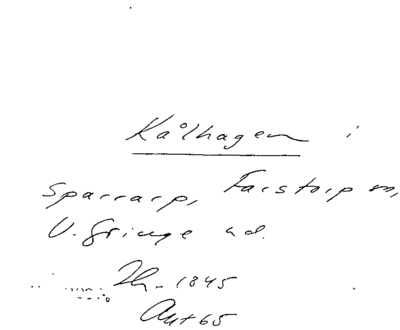 Kålhagen i
Sparrarp, Farstorp sn,
V. Göinge hd.
1845
Akt 65